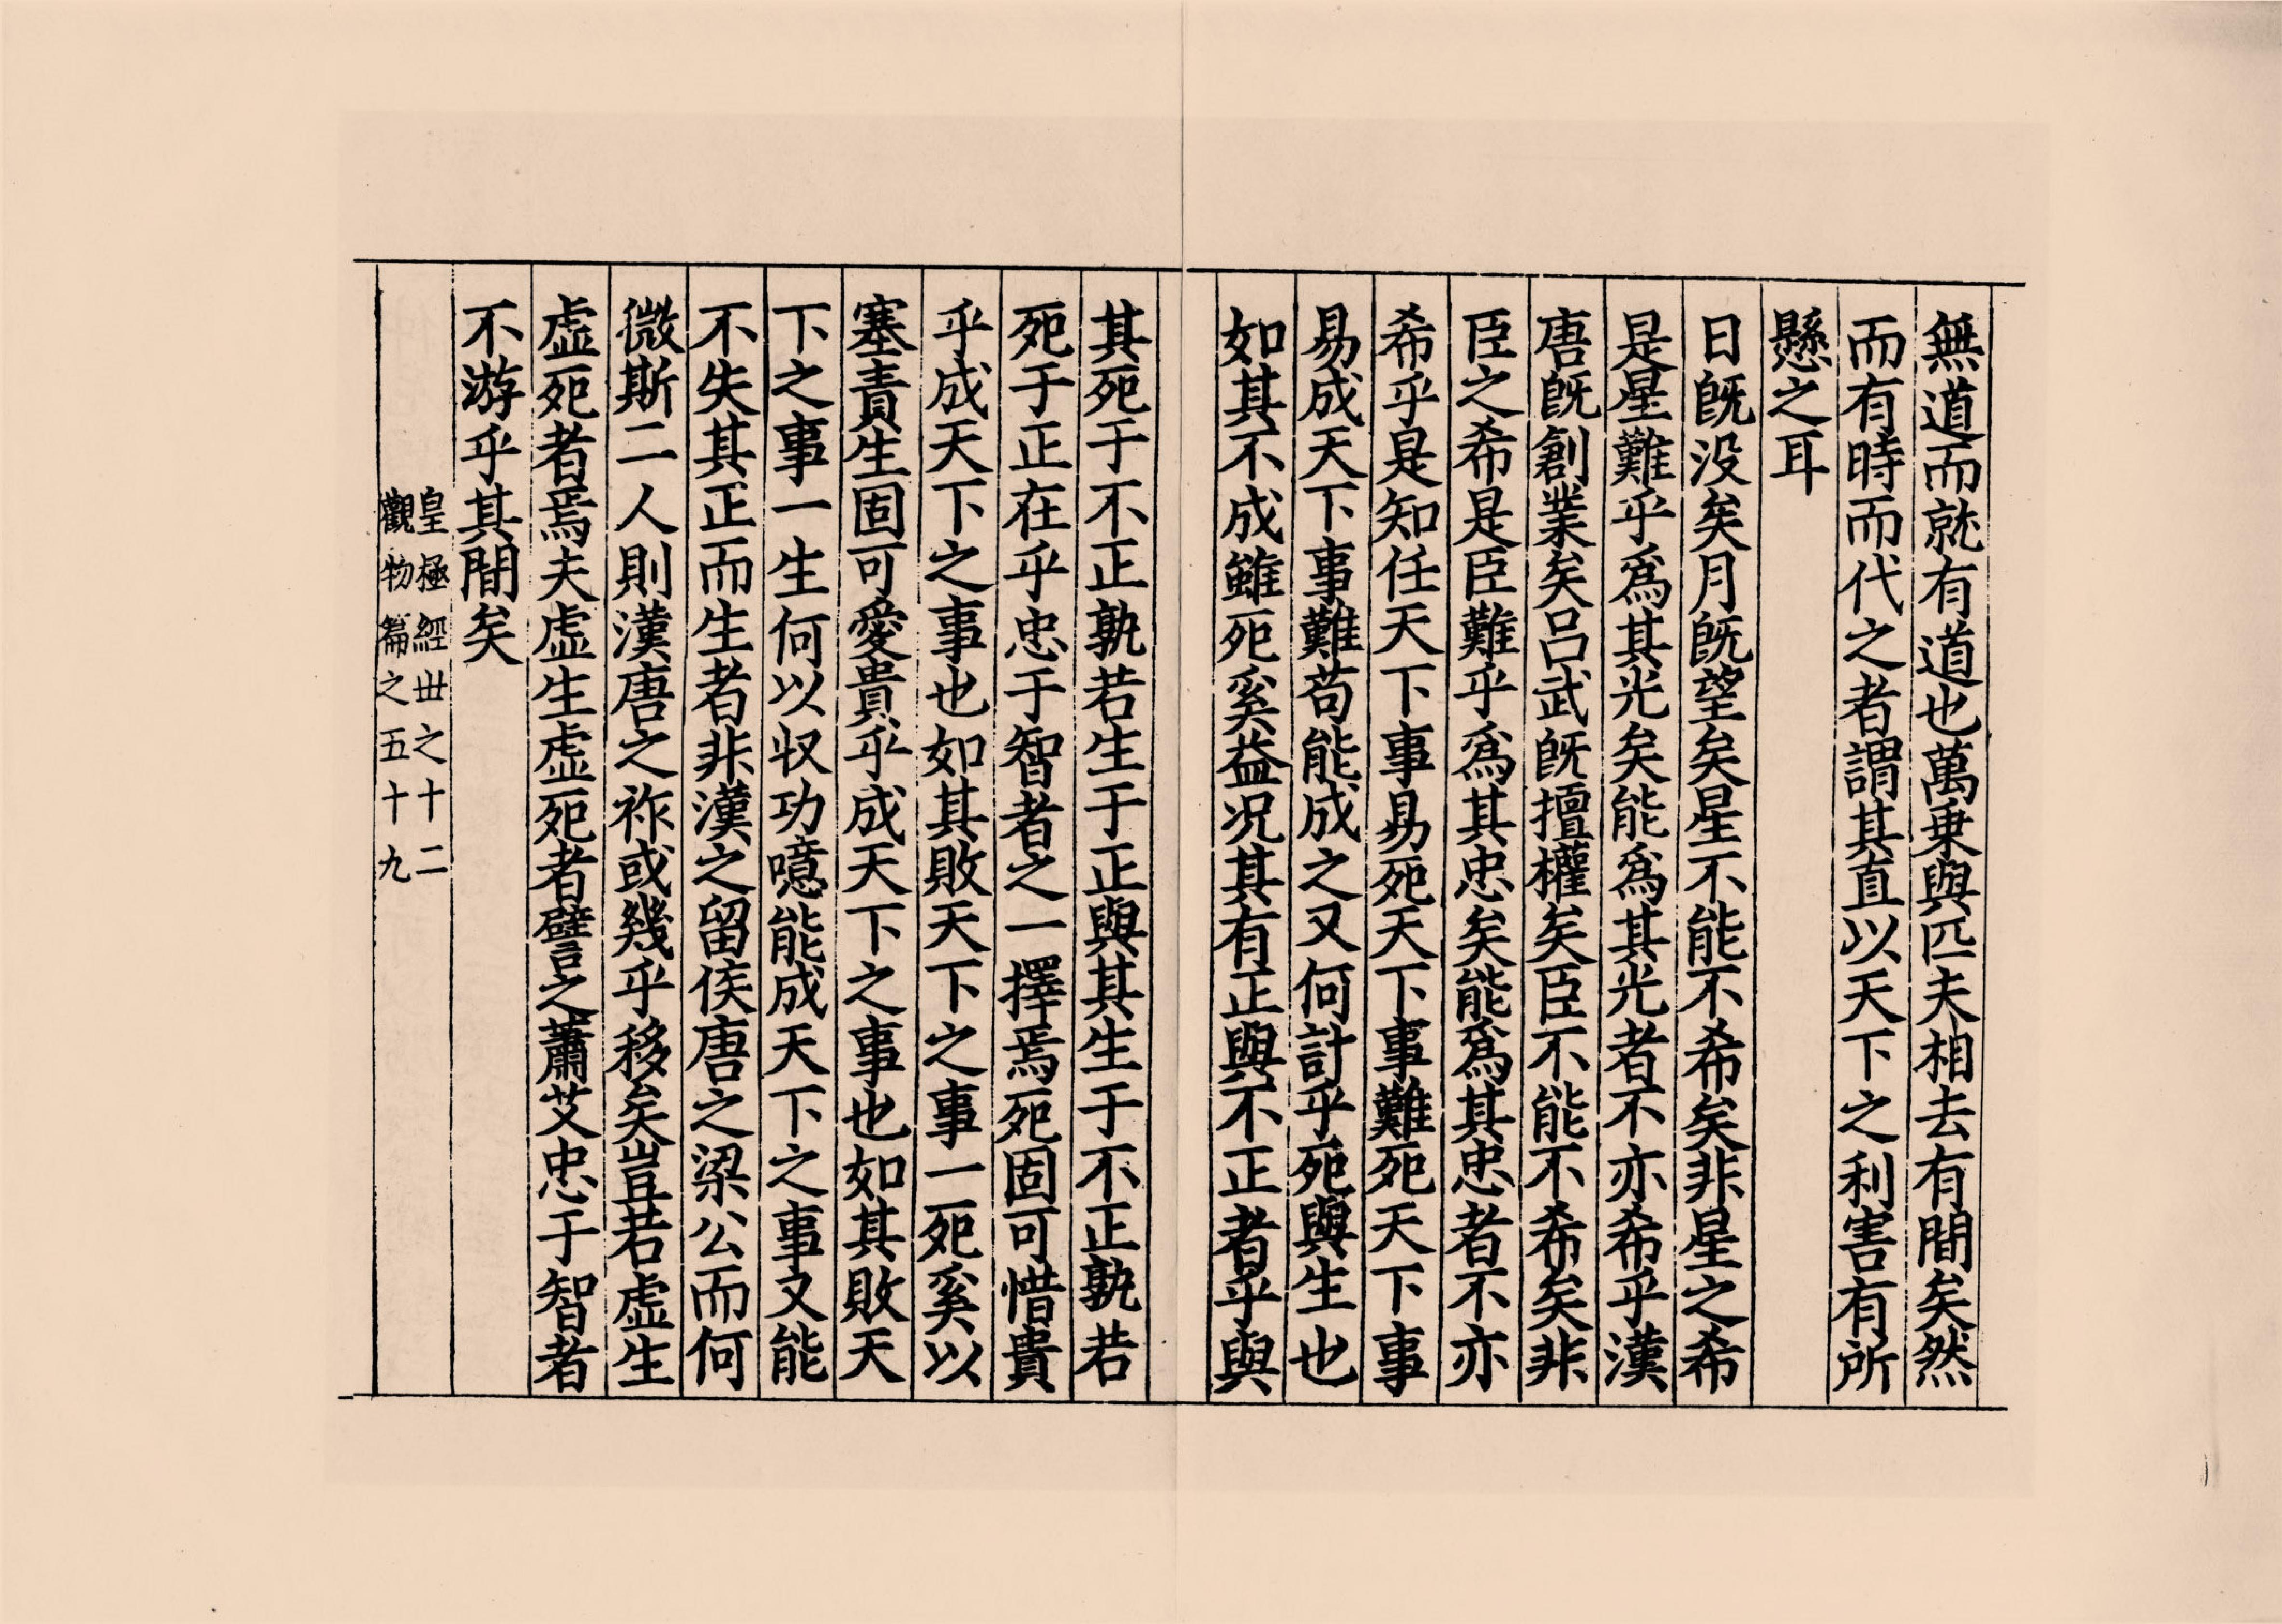 無道而就有道也萬乗與匹夫相去有間矣然
而有時而代之者謂其直以天下之利害有所
懸之耳
日既没矣月既望矣星不能不希矣非星之希
是星難乎爲其光矣能爲其光者不亦希乎漢
唐既創業矣吕武既擅權矣臣不能不希矣非
臣之希是臣難乎爲其忠矣能爲其忠者不亦
希乎是知任天下事易死天下事難死天下事
易成天下事難苟能成之又何計乎死與生也
如其不成雖死奚益况其有正與不正者乎與
其死于不正孰若生于正與其生于不正孰若
死于正在乎忠于智者之一擇焉死固可惜貴
乎成天下之事也如其敗天下之事一死奚以
塞責生固可愛貴乎成天下之事也如其敗天
下之事一生何以収功噫能成天下之事又能
不失其正而生者非漢之留侯唐之梁公而何
微斯二人則漢唐之祚或幾乎移矣豈若虚生
虚死者焉夫虚生虚死者譬之蕭艾忠于智者
不游乎其間矣
皇極經丗之十二
觀物篇之五十九